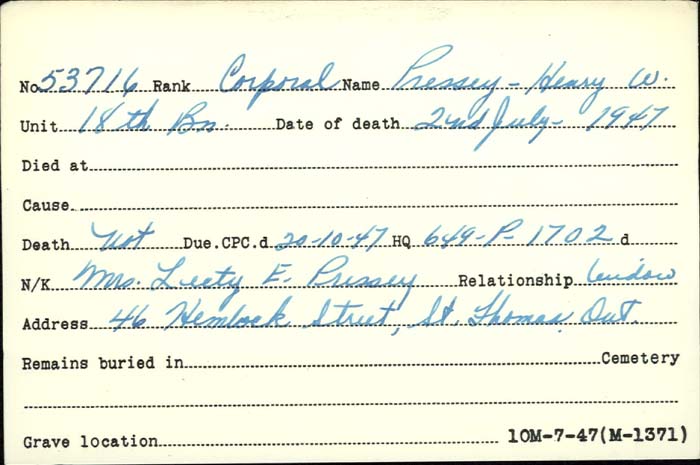 No 53716 Rank Corporal Name Pressey - Henry W.
Unit 18th Bn. Date of death 2nd July - 1947
Died at
Cause
Death Not Due.CPC.d 20-10-47 HQ 649-P-1702 d
N/K Mrs. E. Pressey Relationship Widow
Address 46 Hemlock Street, St. Thomas, Ont.
Remains buried in Cemetery
Grave location 10M-7-47(M-1371)